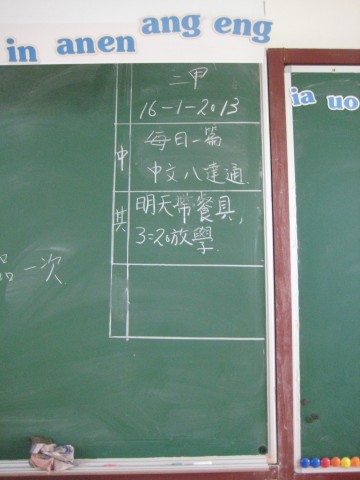 in anen ang eng
ia uo
二甲
16-1-2013
中
每日一篇
中文八達通
其
明天帶餐具，
3=20放學
一次